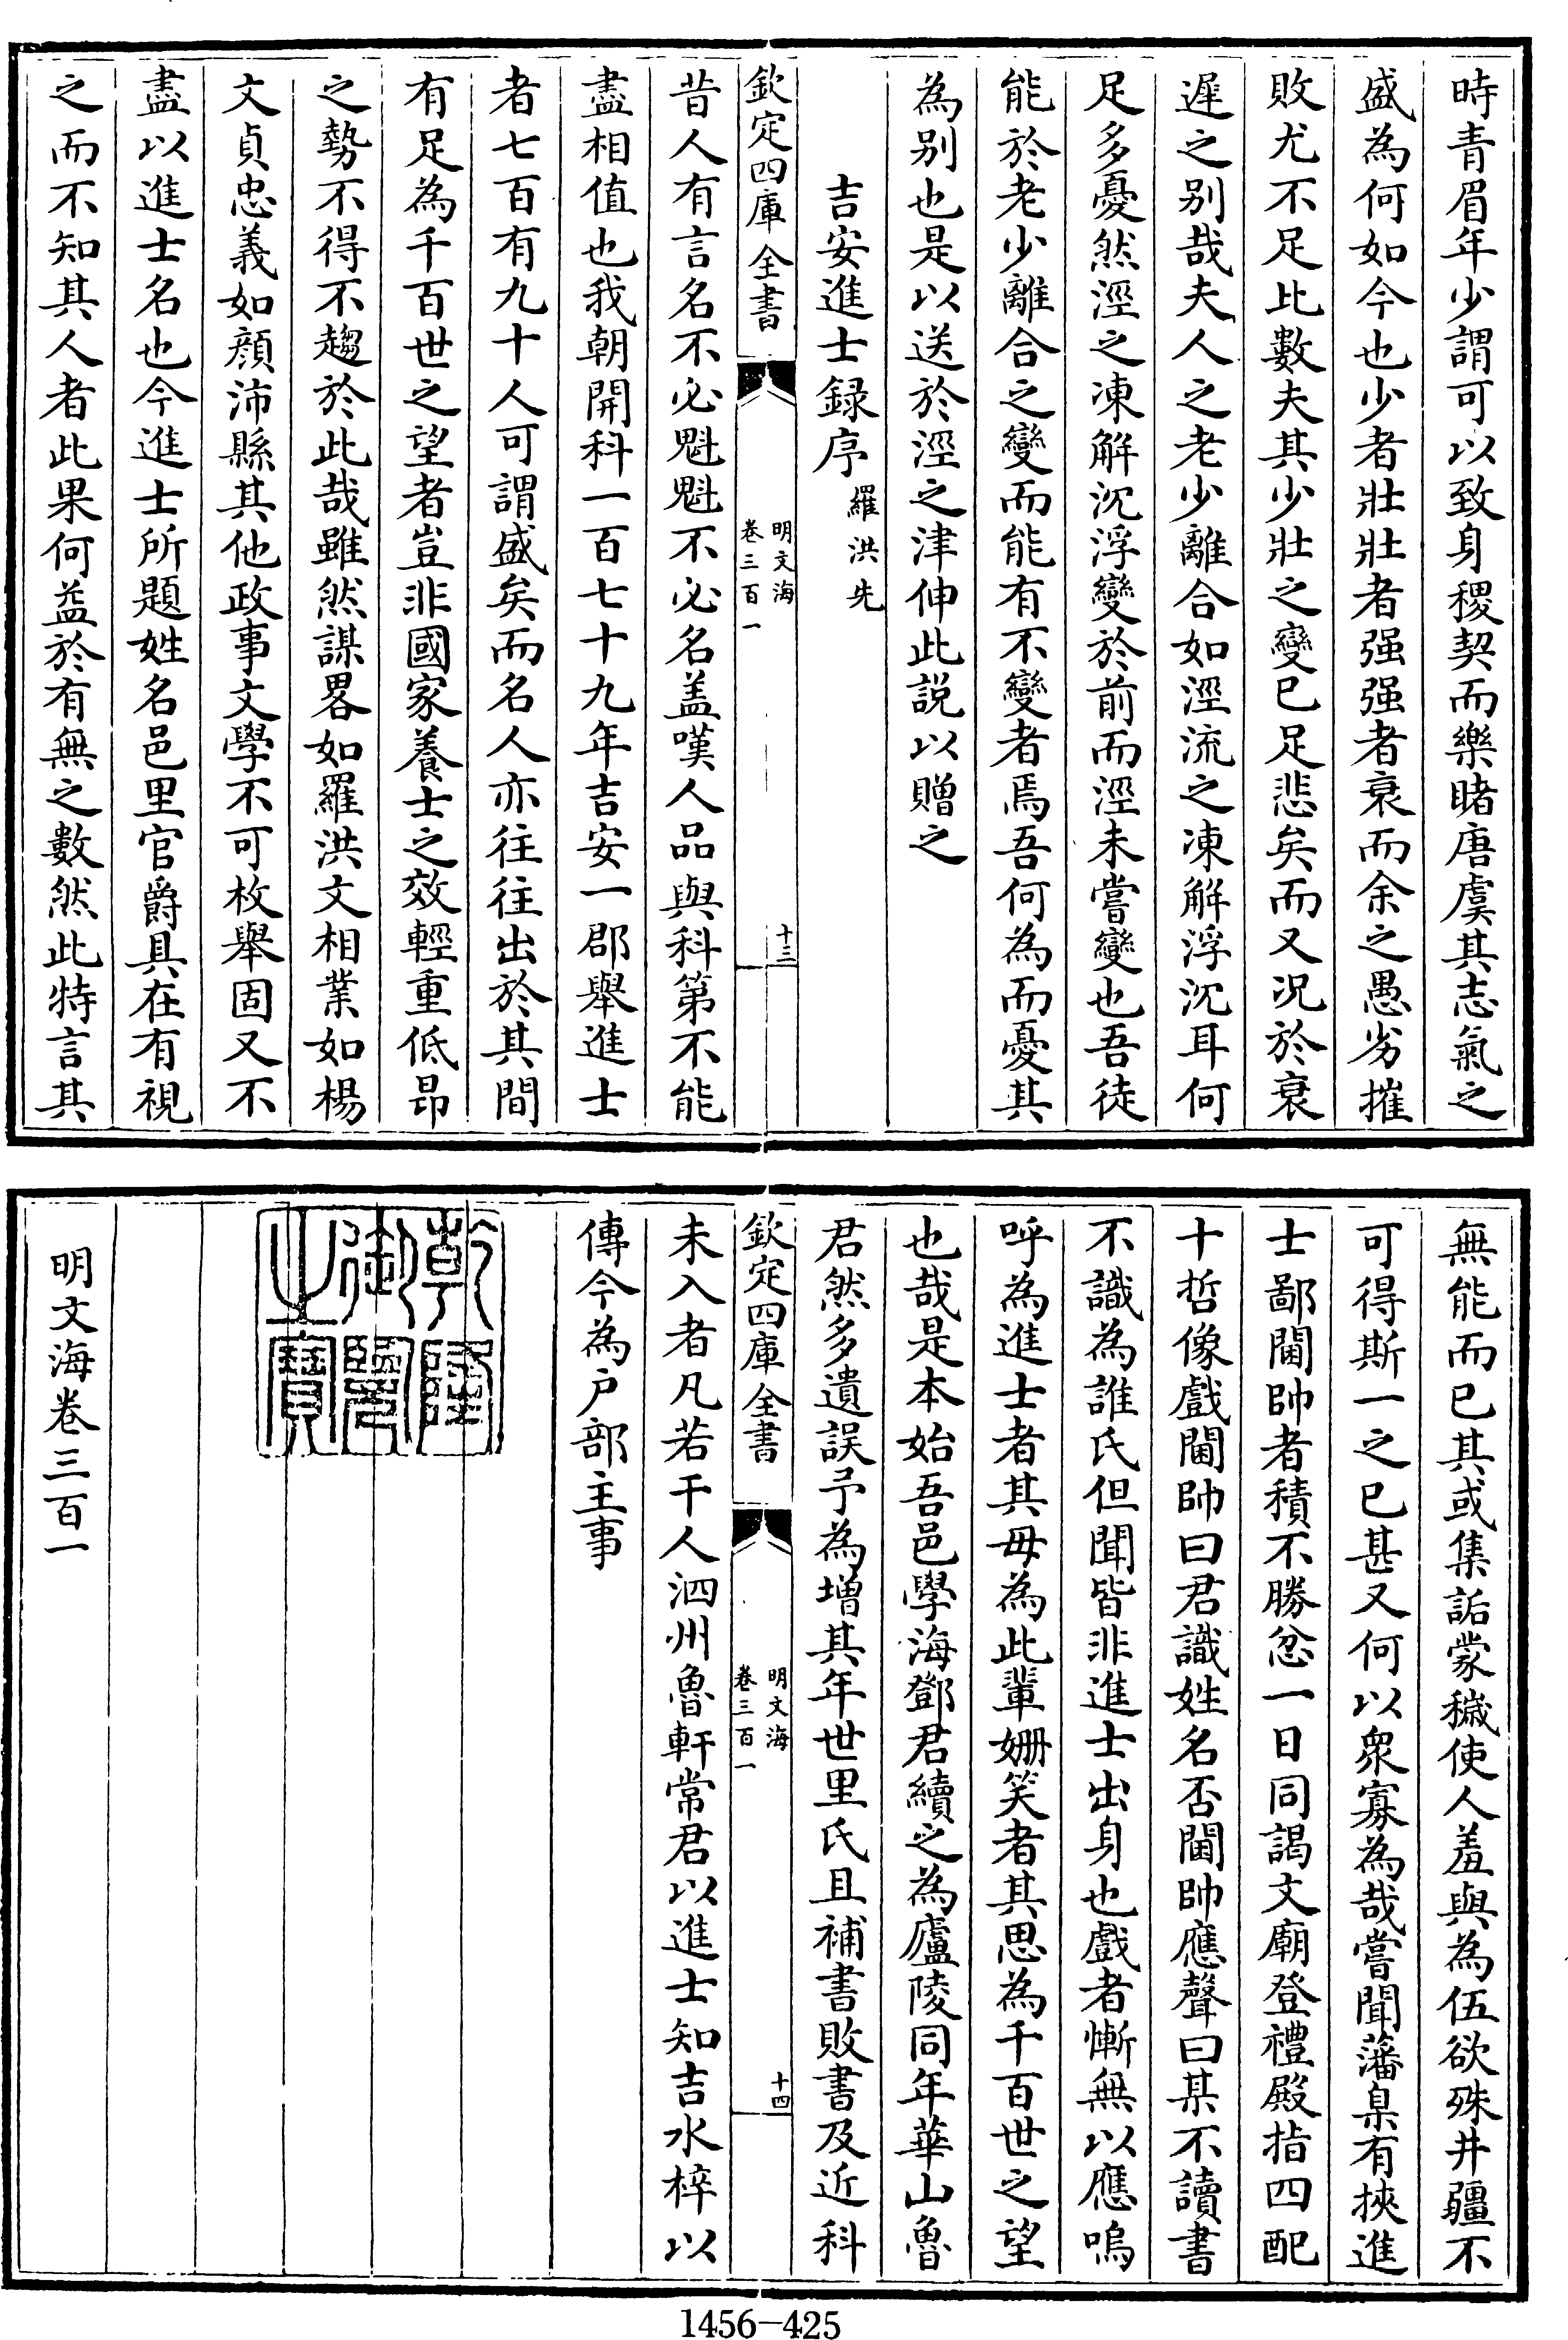 時青眉年少謂可以致身稷契而樂睹唐虞其志氣之
盛為何如今也少者壯壯者强强者衰而余之愚劣摧
敗尤不足比數夫其少壯之變已足悲矣而又况於衰
遲之别哉夫人之老少離合如涇流之凍解浮沉耳何
足多憂然涇之凍解沉浮變於前而涇未嘗變也吾徒
能於老少離合之變而能有不變者焉吾何為而憂其
為别也是以送於涇之津伸此説以贈之
吉安進士録序 羅洪先
欽定四庫全書 明文海 卷三百一 十三
昔人有言名不必魁魁不必名盖嘆人品與科第不能
盡相值也我朝開科一百七十九年吉安一郡舉進士
者七百有九十人可謂盛矣而名人亦往往出於其間
有足為千百世之望者豈非國家養士之效輕重低昂
之勢不得不趨於此哉雖然謀畧如羅洪文相業如楊
文貞忠義如顔沛縣其他政事文學不可枚舉固又不
盡以進士名也今進士所題姓名邑里官爵具在有視
之而不知其人者此果何益於有無之數然此特言其
無能而已其或集詬蒙穢使人羞與為伍欲殊井疆不
可得斯一之已甚又何以衆寡為哉嘗聞藩臬有挾進
士鄙閫帥者積不勝忿一日同謁文廟登禮殿指四配
十哲像戲閫帥曰君識姓名否閫帥應聲曰某不讀書
不識為誰氏但聞皆非進士出身也戲者慚無以應嗚
呼為進士者其毋為此輩姍笑者其思為千百世之望
也哉是本始吾邑學海鄧君續之為廬陵同年華山魯
君然多遺誤予為增其年世里氏且補書敗書及近科
欽定四庫全書 明文海 卷三百一 十四
未入者凡若干人泗州魯軒常君以進士知吉水梓以
傳今為户部主事
乾隆御覽之寶
明文海卷三百一
1456-425